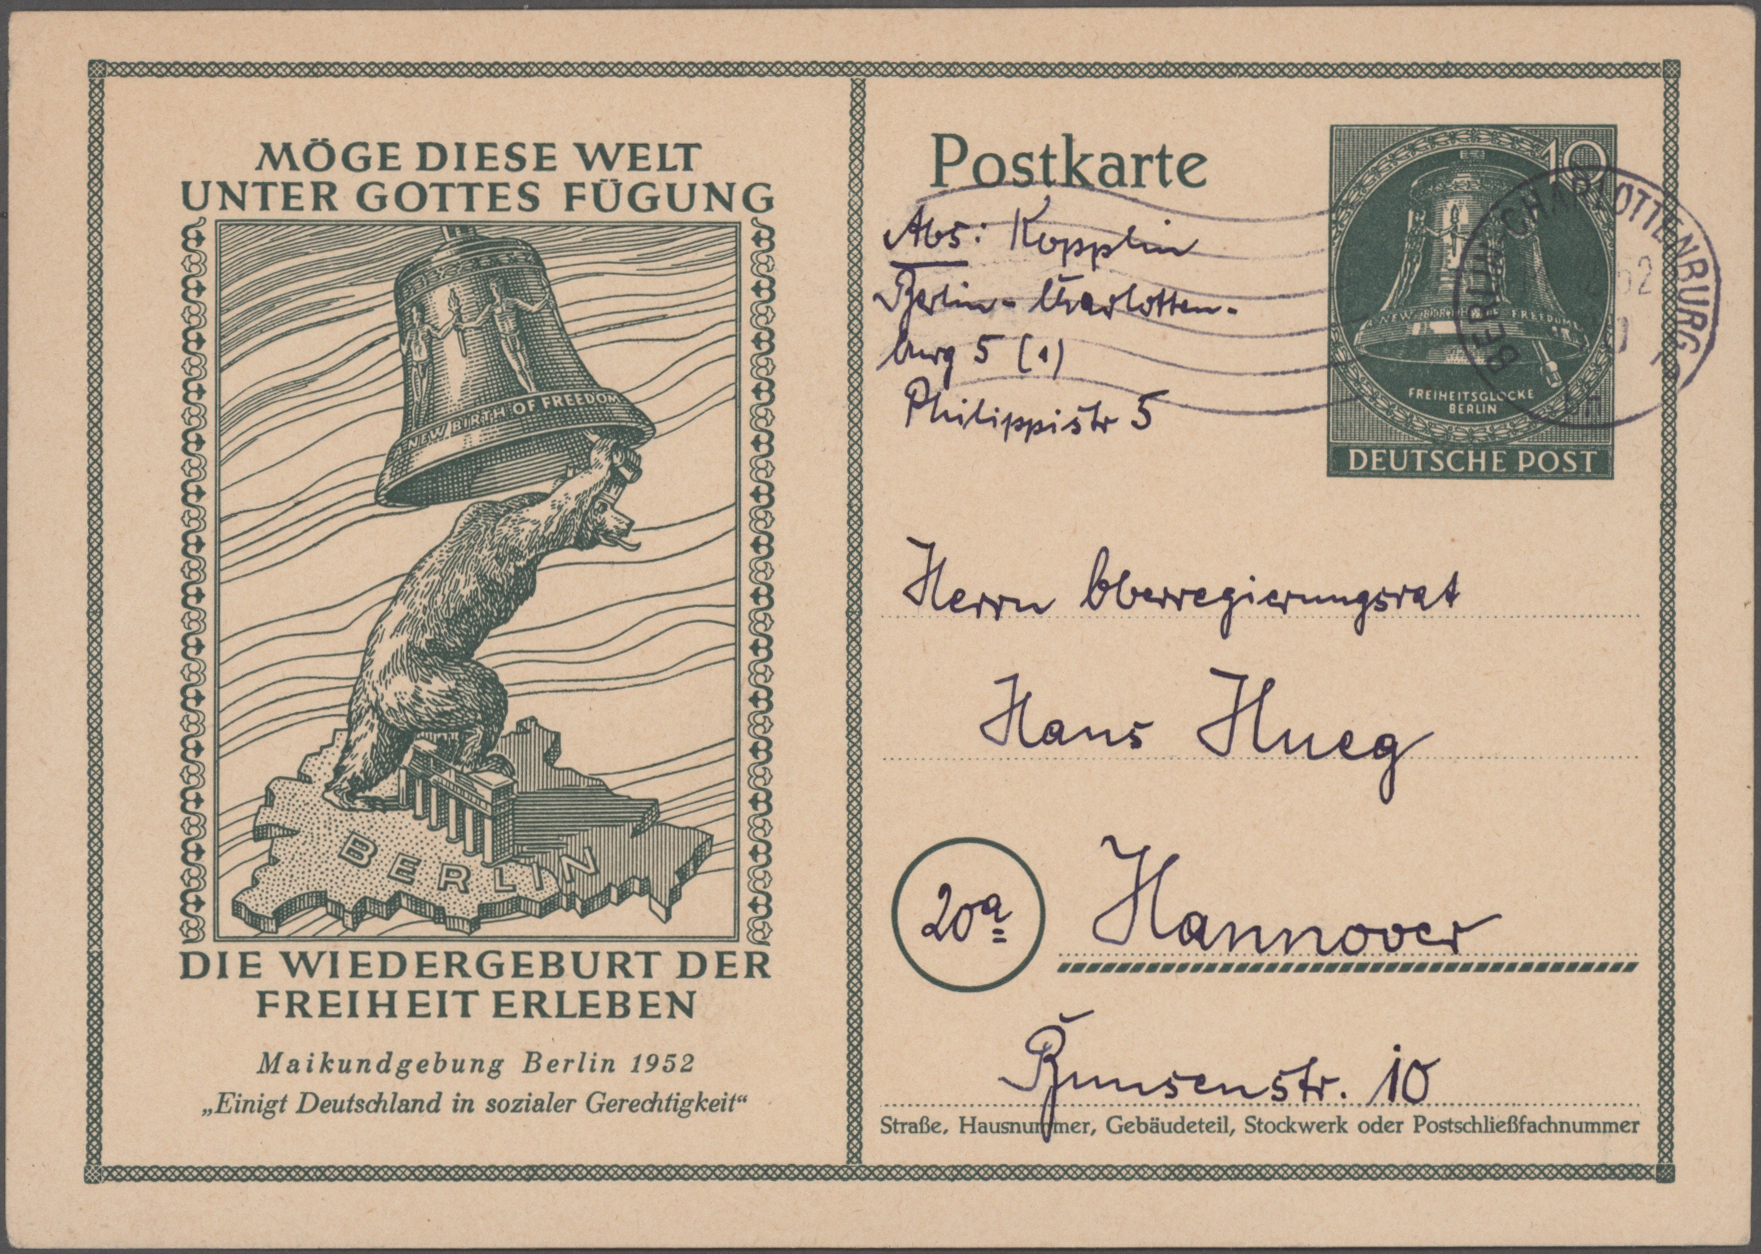 MÖGE DIESE WELT
UNTER GOTTES FÜGUNG
NEW BIRTH OF FREEDOM
BERLIN
DIE WIEDERGEBURT DER
FREIHEIT ERLEBEN
Maikundgebung Berlin 1952
„Einigt Deutschland in sozialer Gerechtigkeit“
Postkarte
Abs: Kopplin
Berlin-Charlotten-
burg 5 (1)
Philippistr 5
10
NEW BIRTH OF FREEDOM
FREIHEITSGLOCKE
BERLIN
DEUTSCHE POST
BERLIN-CHARLOTTENBURG
52
Herrn Oberregierungsrat
Hans Hueg
20a
Hannover
Bunsenstr. 10
Straße, Hausnummer, Gebäudeteil, Stockwerk oder Postschließfachnummer